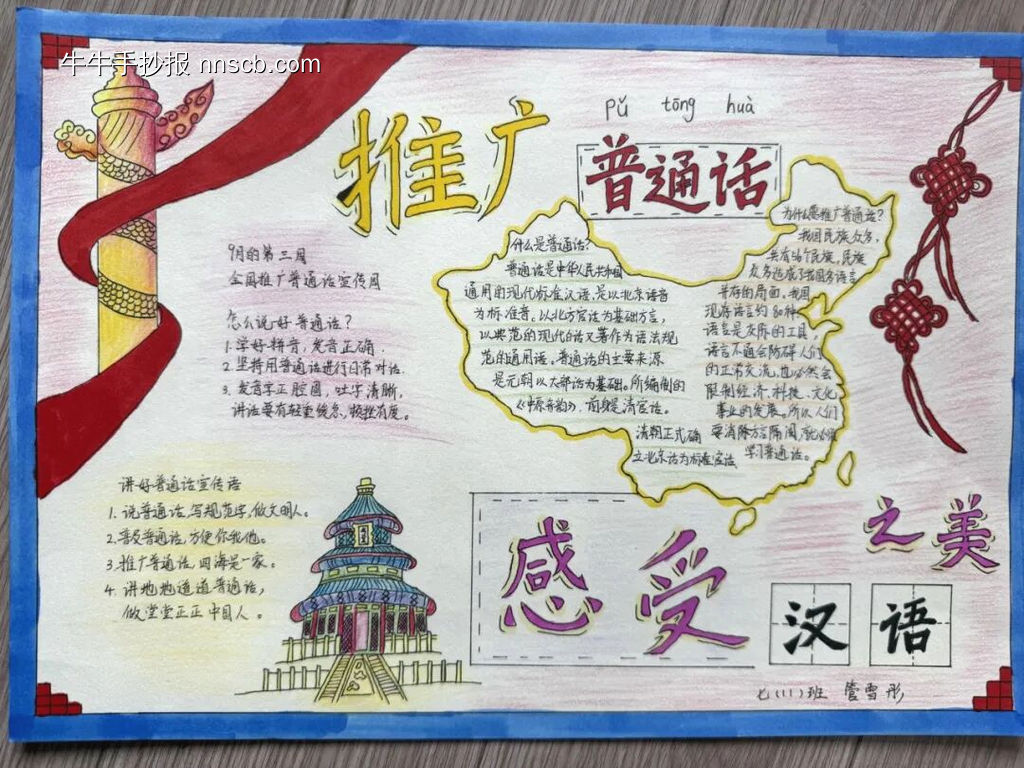 牛牛手抄报 nnscb.com
推广
pǔ tōng huà
普通话
9月的第三周
全国推广普通话宣传周
怎么说好普通话?
1.学好拼音,发音正确.
2.坚持用普通话进行日常对话.
3.发音字正腔圆,吐字清晰,
讲话要有轻重缓急、顿挫有度。
什么是普通话?
普通话是中华人民共和国
通用的现代标准汉语,是以北京语音
为标准音,以北方官话为基础方言,
以典范的现代白话文著作为语法规
范的通用语。普通话的主要来源
是元朝以大都话为基础。所编制的
《中原音韵》,前身是清官话。
清朝正式确
立北京话为标准官话
为什么要推广普通话?
我国民族众多,
共有56个民族,民族
众多造成了我国多语言
并存的局面。我国
现存语言约80种
语言是交际的工具,
语言不通会防碍人们
的正常交流,也必然会
限制经济、科技、文化
事业的发展。所以人们
要消除方言隔阂,就必须
学习普通话。
讲好普通话宣传语
1.说普通话,写规范字,做文明人。
2.普及普通话,方便你我他。
3.推广普通话,四海是一家。
4.讲地地道道普通话,
做堂堂正正中国人。
感受
汉语
之美
七(11)班 管雪彤